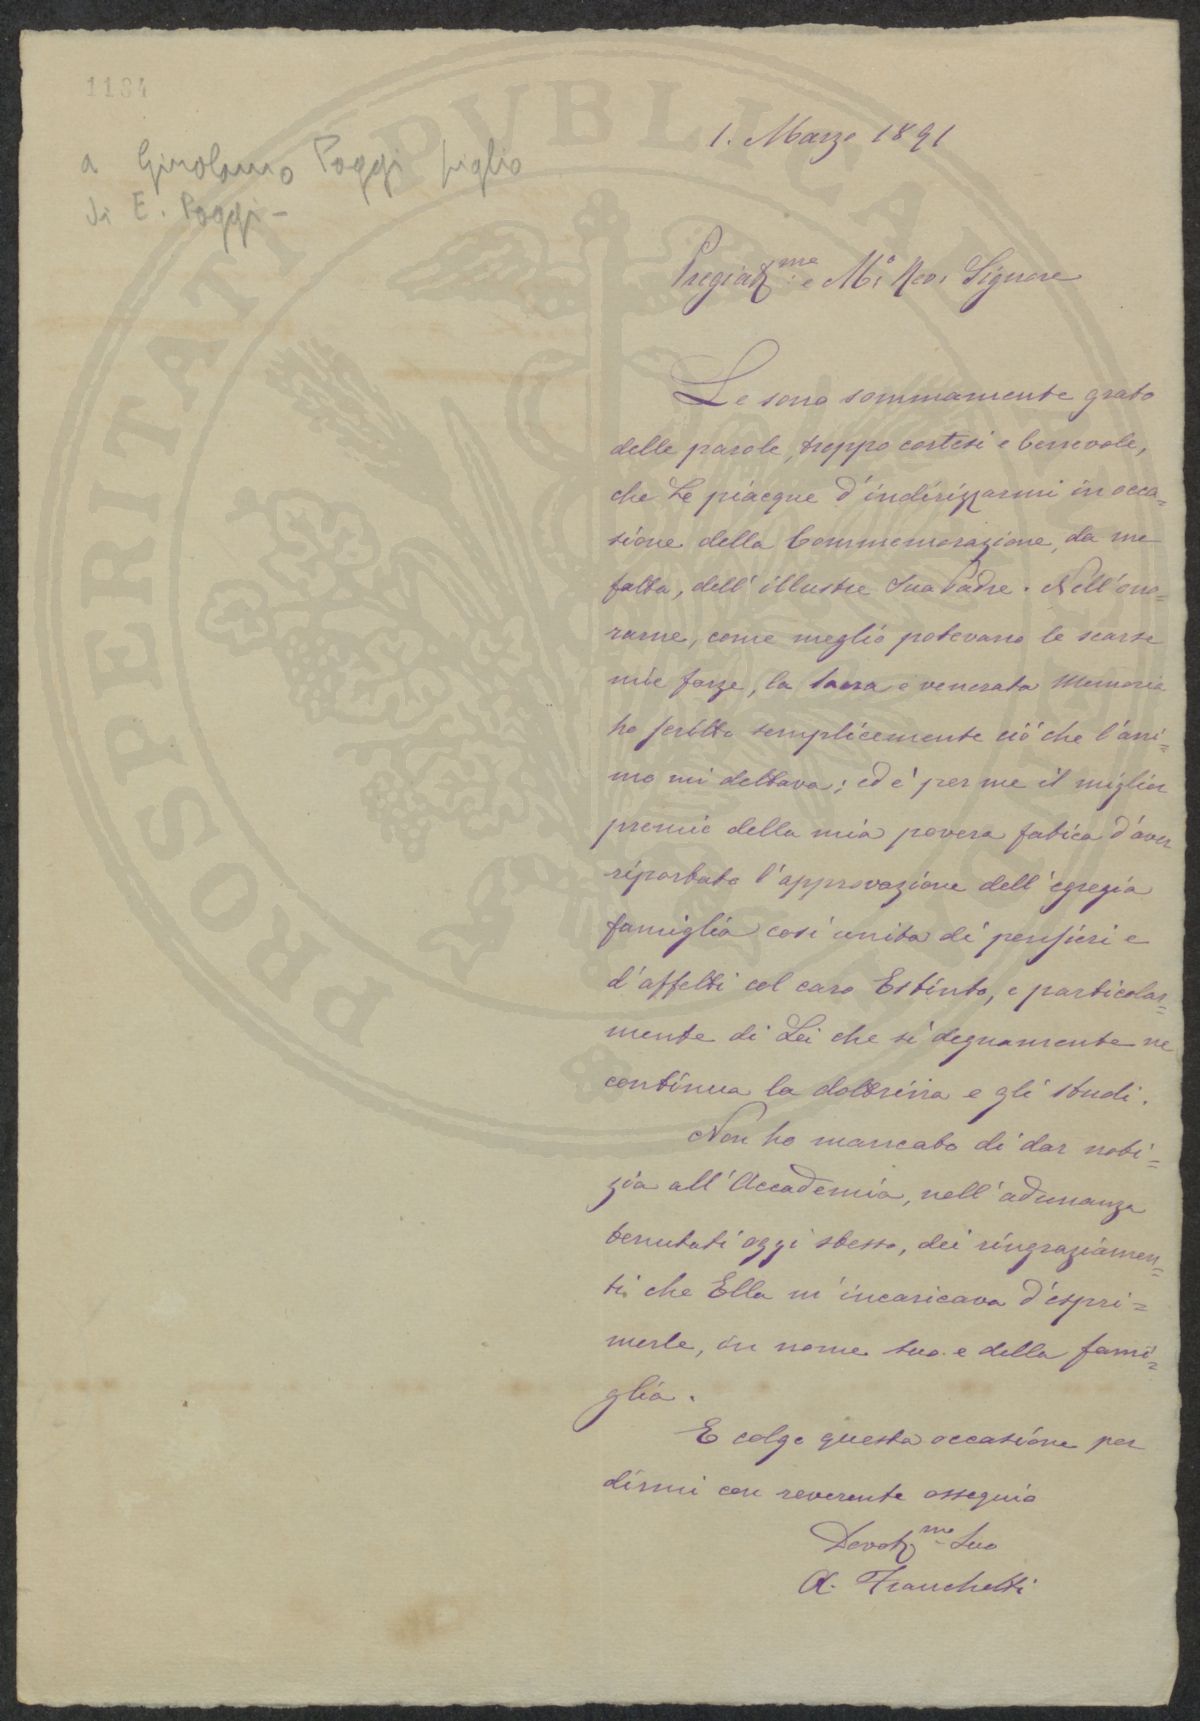 1184
a Girolamo Poggi figlio
di E. Poggi -
1. Marzo 1891
Pregiat.me e M.o Rev. Signore
Le sono sommamente grato
delle parole, troppo cortesi e benevole,
che Le piacque d'indirizzarmi in occa=
sione della Commemorazione, da me
fatta, dell'illustre Suo Padre. Nell'ono=
rarne, come meglio potevano le scarse
mie forze, la sacra e venerata Memoria
ho scritto semplicemente ciò che l'ani=
mo mi dettava; ed è per me il miglior
premio della mia povera fatica d'aver
riportato l'approvazione dell'egregia
famiglia così unita di pensieri e
d'affetti col caro Estinto, e particolar=
mente di Lei che sì degnamente ne
continua la dottrina e gli studi.
Non ho mancato di dar noti=
zia all'Accademia, nell'adunanza
tenutasi oggi stesso, dei ringraziamen=
ti che Ella m'incaricava d'espri=
merle, in nome suo e della fami=
glia.
E colgo questa occasione per
dirmi con reverente ossequio
Devot.mo Suo
A. Franchetti
PROSPERITATI PVBLICAE